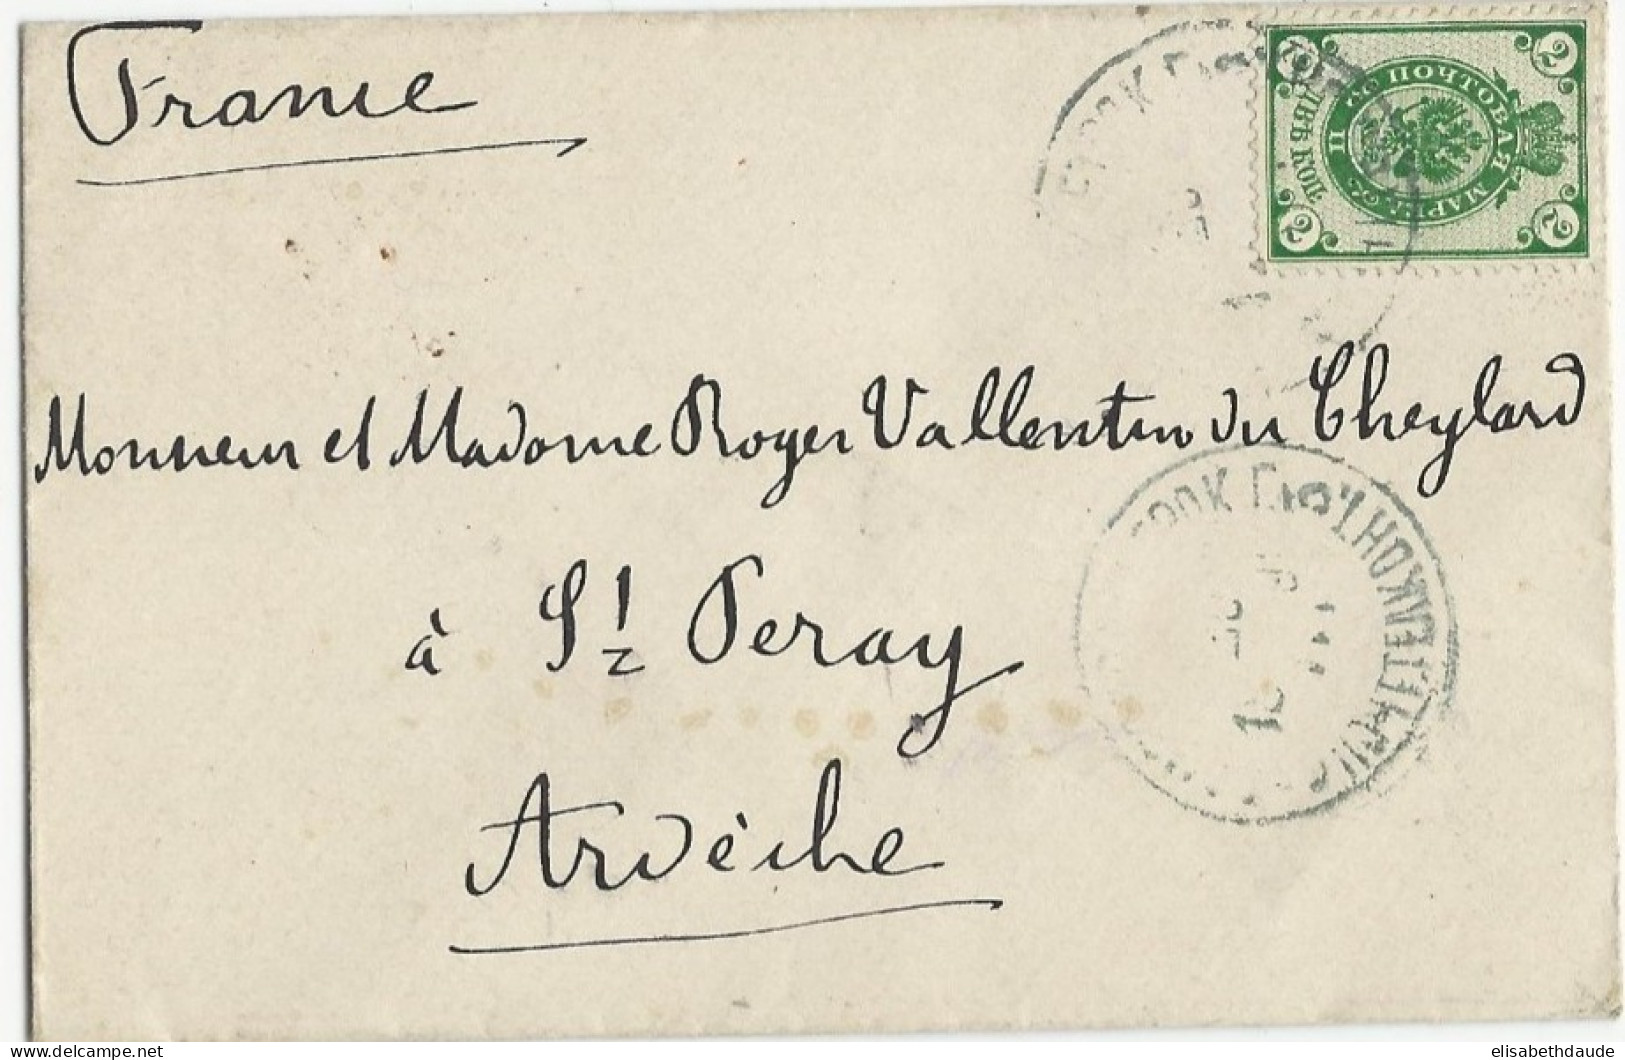 France
2 2
ПОЧТОВАЯ МАРКА
ДВѢ КОП.
2 2
Monsieur et Madame Roger Vallentin du Cheylard
à St Peray
Ardèche
delcampe.net
elisabethdaude